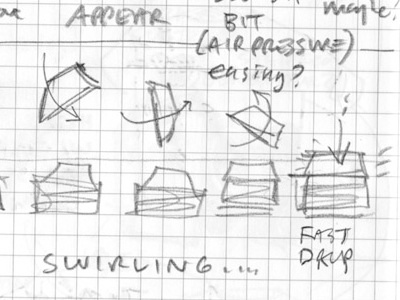 APPEAR
BIT
maybe!
(AIR PRESSURE)
easing?
FAST
DROP
SWIRLING....